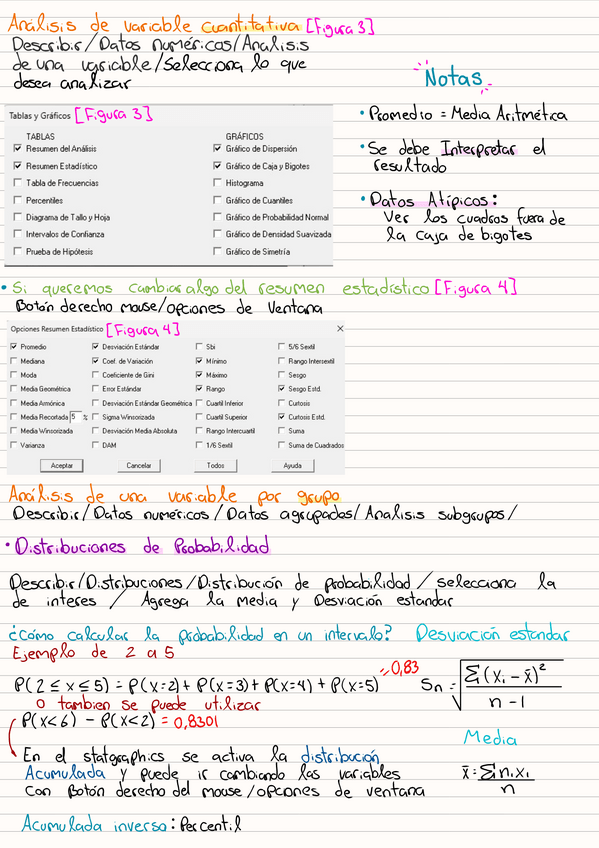 Análisis de variable cuantitativa [Figura 3]
Describir/Datos numéricos/Analisis
de una variable/Selecciona lo que
desea analizar
Notas
• Promedio = Media Aritmética
• Se debe Interpretar el
resultado
• Datos Atípicos:
Ver los cuadros fuera de
la caja de bigotes
Tablas y Gráficos [Figura 3]
TABLAS
Resumen del Análisis
Resumen Estadístico
Tabla de Frecuencias
Percentiles
Diagrama de Tallo y Hoja
Intervalos de Confianza
Prueba de Hipótesis
GRÁFICOS
Gráfico de Dispersión
Gráfico de Caja y Bigotes
Histograma
Gráfico de Cuantiles
Gráfico de Probabilidad Normal
Gráfico de Densidad Suavizada
Gráfico de Simetría
• Si queremos cambiar algo del resumen estadístico [Figura 4]
Botón derecho mouse/opciones de ventana
Opciones Resumen Estadístico [Figura 4]
Promedio
Mediana
Moda
Media Geométrica
Media Armónica
Media Recortada 5 %
Media Winsorizada
Varianza
Desviación Estándar
Coef. de Variación
Coeficiente de Gini
Error Estándar
Desviación Estándar Geométrica
Sigma Winsorizada
Desviación Media Absoluta
DAM
Sbi
Mínimo
Máximo
Rango
Cuartil Inferior
Cuartil Superior
Rango Intercuartil
1/6 Sextil
5/6 Sextil
Rango Intersextil
Sesgo
Sesgo Estd.
Curtosis
Curtosis Estd.
Suma
Suma de Cuadrados
Aceptar Cancelar Todos Ayuda
Análisis de una variable por grupo
Describir/Datos numericos/Datos agrupados/Analisis subgrupos/
• Distribuciones de Probabilidad
Describir/Distribuciones/Distribución de probabilidad/selecciona la
de interes / Agrega la media y Desviación estandar
¿Cómo calcular la probabilidad en un intervalo? Desviación estandar
Ejemplo de 2 a 5
P(2 ≤ x ≤ 5) = P(x=2) + P(x=3) + P(x=4) + P(x=5) = 0,83
Sn = √(Σ(xᵢ - x̄)² / n - 1)
O tambien se puede utilizar
P(x<6) - P(x<2) = 0,8301
Media
x̄ = Σnᵢxᵢ / n
En el statgraphics se activa la distribución
Acumulada y puede ir cambiando las variables
con Botón derecho del mouse/opciones de ventana
Acumulada inverso: Percentil